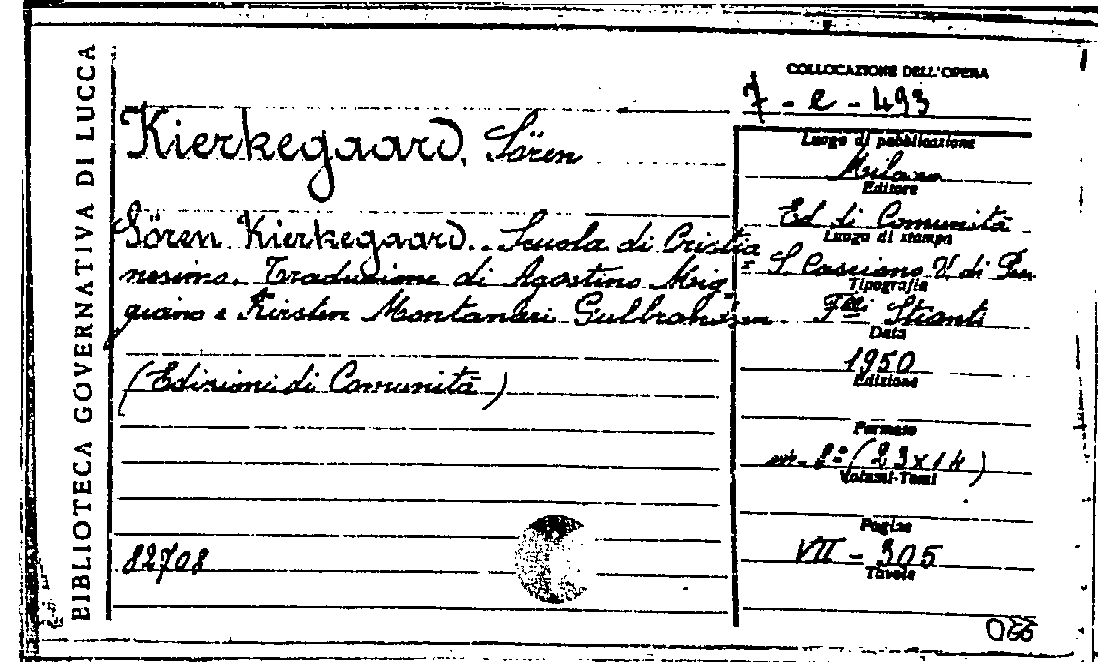 BIBLIOTECA GOVERNATIVA DI LUCCA
Kierkegaard, Sören
Sören Kierkegaard. - Scuola di Cristia
nesimo. Traduzione di Agostino Mig=
guano e Kirsten Montanari Gulbrandsen.
(Edizioni di Comunità)
82708
COLLOCAZIONE DELL'OPERA
7 - e - 493
Luogo di pubblicazione
Milano
Editore
Ed. di Comunità
Luogo di stampa
S. Casciano V. di
Tipografia
F.lli Stianti
Data
1950
Edizione
Formato
in-8° (23x14)
Volumi-Tomi
Pagine
VII - 305
Tavole